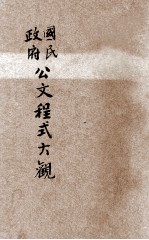 國民政府
公文程式大觀